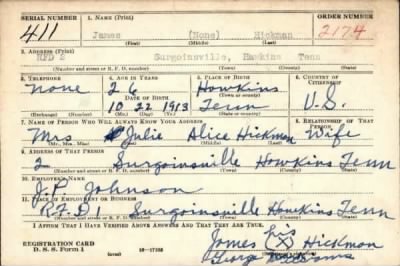 SERIAL NUMBER 1. NAME (Print) ORDER NUMBER
411 James (None) Hickman 2174
(First) (Middle) (Last)
2. ADDRESS (Print)
RFD 2 Surgoinsville, Hawkins Tenn
(Number and street or R. F. D. number) (Town) (County) (State)
3. TELEPHONE 4. AGE IN YEARS 5. PLACE OF BIRTH 6. COUNTRY OF CITIZENSHIP
None 26 Howkins
DATE OF BIRTH (Town or county)
10 22 1913 Tenn U.S.
(Exchange) (Number) (Mo.) (Day) (Yr.) (State or country)
7. NAME OF PERSON WHO WILL ALWAYS KNOW YOUR ADDRESS 8. RELATIONSHIP OF THAT PERSON
Mrs Julie Alice Hickman Wife
(Mr., Mrs., Miss) (First) (Middle) (Last)
9. ADDRESS OF THAT PERSON
2 Surgoinsville Howkins Tenn
(Number and street or R. F. D. number) (Town) (County) (State)
10. EMPLOYER'S NAME
J.P. Johnson
11. PLACE OF EMPLOYMENT OR BUSINESS
RFD1 Surgoinsville Howkins Tenn
(Number and street or R. F. D. number) (Town) (County) (State)
I AFFIRM THAT I HAVE VERIFIED ABOVE ANSWERS AND THAT THEY ARE TRUE.
REGISTRATION CARD his
D. S. S. Form 1 (over) 16-17105 James (X) Hickman
George Williams